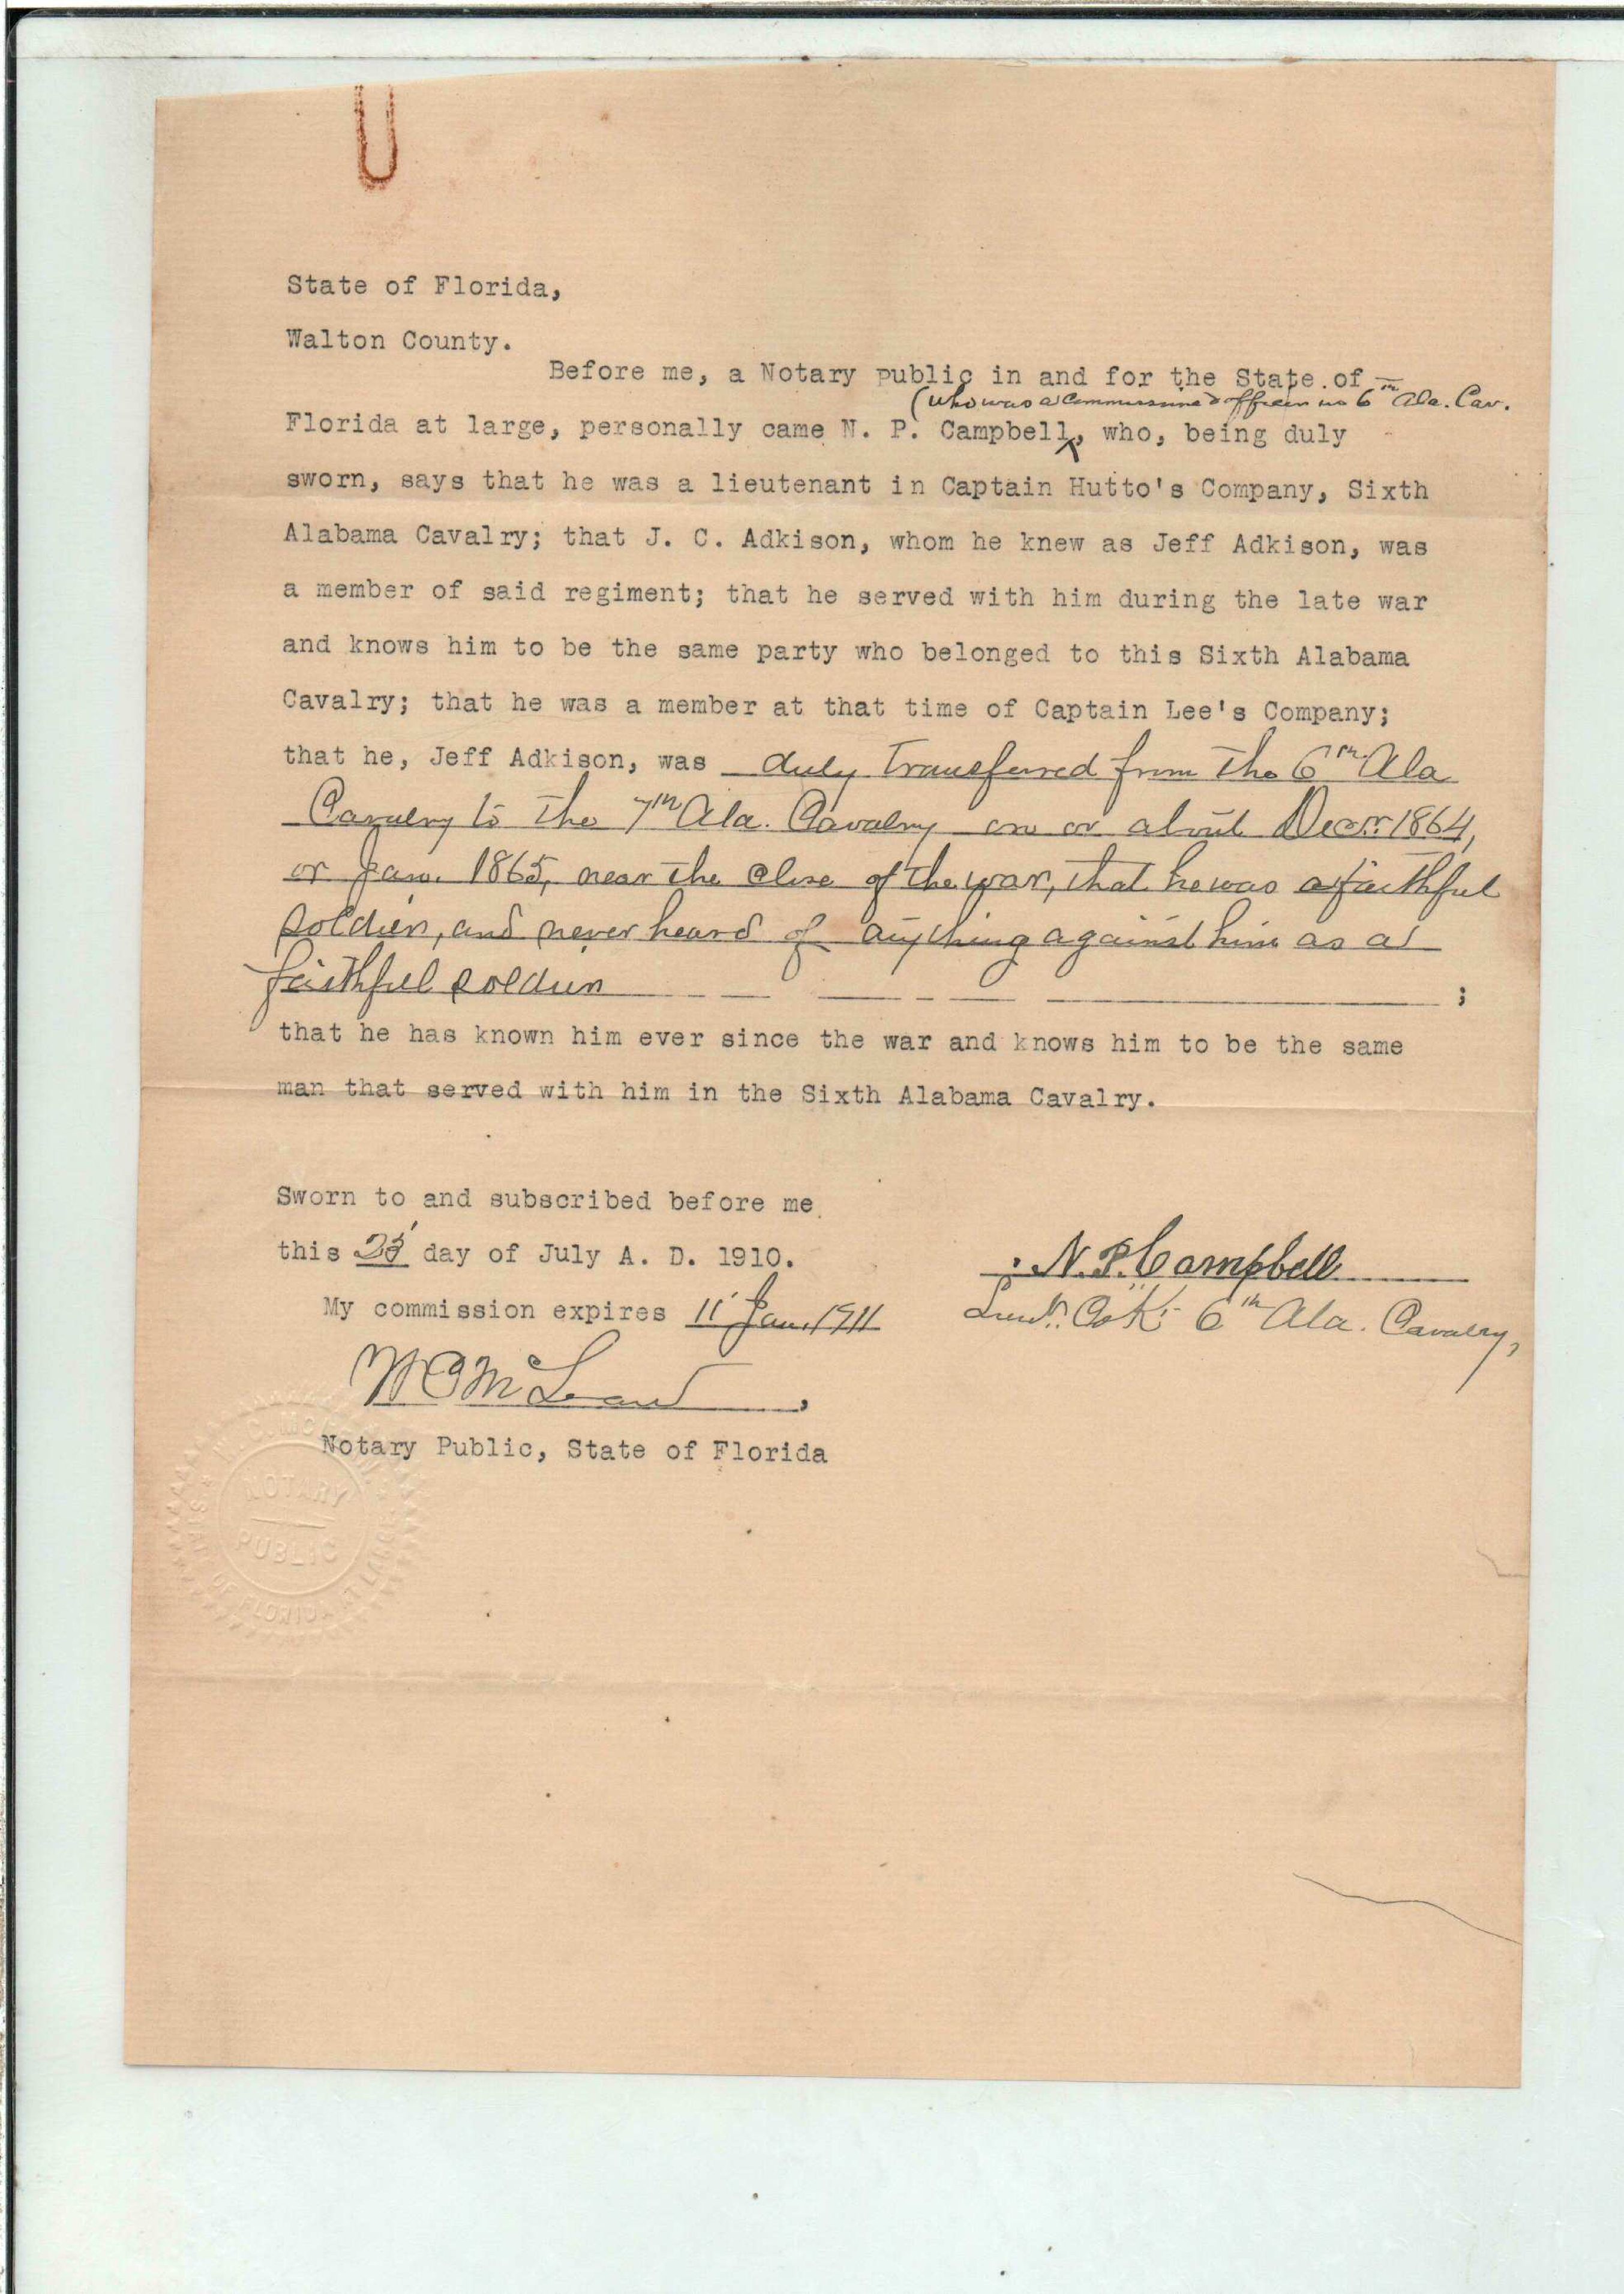 State of Florida,
Walton County.
Before me, a Notary public in and for the State of
(who was a Commissioned officer in 6th Ala. Cav.
Florida at large, personally came N. P. Campbell, who, being duly
sworn, says that he was a lieutenant in Captain Hutto's Company, Sixth
Alabama Cavalry; that J. C. Adkison, whom he knew as Jeff Adkison, was
a member of said regiment; that he served with him during the late war
and knows him to be the same party who belonged to this Sixth Alabama
Cavalry; that he was a member at that time of Captain Lee's Company;
that he, Jeff Adkison, was duly Transferred from The 6th Ala
Cavalry to The 7th Ala. Cavalry on or about Decr. 1864,
or Jan. 1865, near The Close of the war, that he was a faithful
soldier, and never heard of anything against him as a
faithful soldier ;
that he has known him ever since the war and knows him to be the same
man that served with him in the Sixth Alabama Cavalry.
Sworn to and subscribed before me
this day of July A. D. 1910.
N. P. Campbell
My commission expires 11 Jan. 1911
Lieut. Co K 6th Ala. Cavalry,
Notary Public, State of Florida
NOTARY
PUBLIC
STATE OF FLORIDA AT LARGE